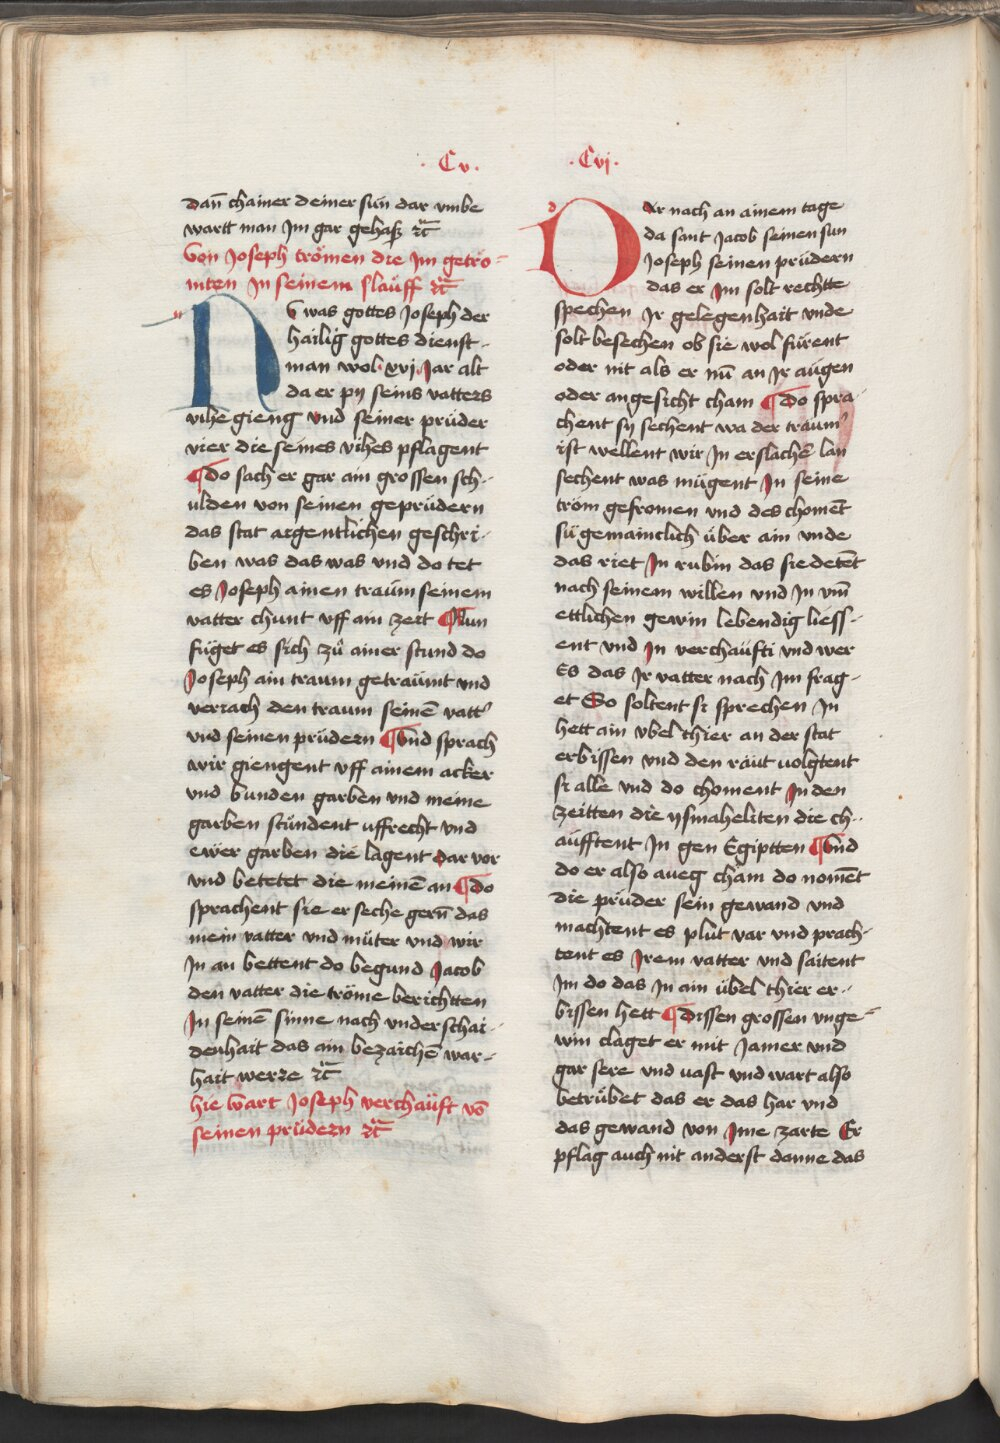 · Cv ·
dañ chainer deiner sun dar vmbe
wartt man Jm gar gehasz ꝛc̃
Von Joseph trömen die Jm getrö-
mten Jn seinem slauff ꝛc̃
NV was gottes Joseph der
hailig gottes dienst-
man wol xvj Jar alt
da er pÿ seins vatters
vihe gieng vnd seiner prüder
vier die seines vihes pflagent
¶ Do sach er gar ain grossen sch-
ulden von seinen geprüdern
das stat aigentlichen geschri-
ben was das was vnd do tet
es Joseph ainen traum seinem
vatter chunt vff ain zeit ¶ Nun
füget es sich zů ainer stund do
Joseph ain traum geträumt vnd
veriach den traum seinē vattr̃
vnd seinen prüdern ¶ Vnd sprach
wir giengent vff ainem acker
vnd bunden garben vnd meine
garben stündent uffrecht vnd
ewer garben die lägent dar vor
vnd betetet die meinē an ¶ Do
sprachent sie er seche gern̄ das
mein vatter vnd müter vnd wir
Jn an bettent do begund Jacob
den vatter die tröme berichtten
Jn seinē sinne nach vnderschai-
denhait das ain bezaichē war-
hait werze ꝛc̃
hie wart Joseph verchaüft vō
seinen prüdern ꝛc̃
· Cvj ·
DAr nach an ainem tage
da sant Jacob seinen sun
Joseph seinen prüdern
das er Jm solt rechtte
spechen Jr gelegenhait vnde
solt besechen ob sie wol fürent
oder nit als er nū an Jr augen
oder angesicht cham ¶ Do spra-
chent sy sechent wa der traumr̃
ist wellent wir Jn erslachē lan
sechent was mügent Jn seine
tröm gefromen vnd des chomēt
sü gemainclich über ain vnde
das riet Jn rubin das sie detēt
nach seinem willen vnd Jn vm̃
ettlichen gewin lebendig liess-
ent vnd Jn verchaüfti vnd wer
Es das Jr vatter nach Jm frag-
et So soltent si sprechen Jn
hett ain vbel thier an der stat
erbissen vnd den rät uolgtent
si alle vnd do choment Jn den
zeitten die ysmaheliten die ch-
aufftent Jn gen Egiptten ¶ Vnd
do er also aueg cham do nomēt
die prüder sein gewand vnd
machtent es plut var vnd prach-
tent es Jrem vatter vnd saitent
Jm do das Jn ain übel thier er-
bissen hett ¶ Dissen grossen vnge-
win claget er mit Jamer vnd
gar sere vnd uast vnd wart also
betrübet das er das har vnd
das gewand von Jme zarte Er
pflag auch nit anderst danne das